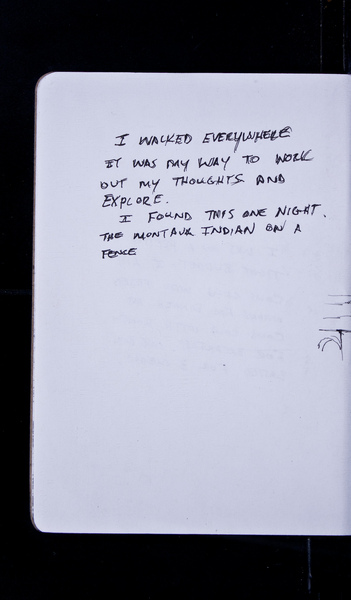 I WALKED EVERYWHERE
IT WAS MY WAY TO WORK
OUT MY THOUGHTS AND
EXPLORE.
I FOUND THIS ONE NIGHT.
THE MONTAUK INDIAN ON A
FENCE